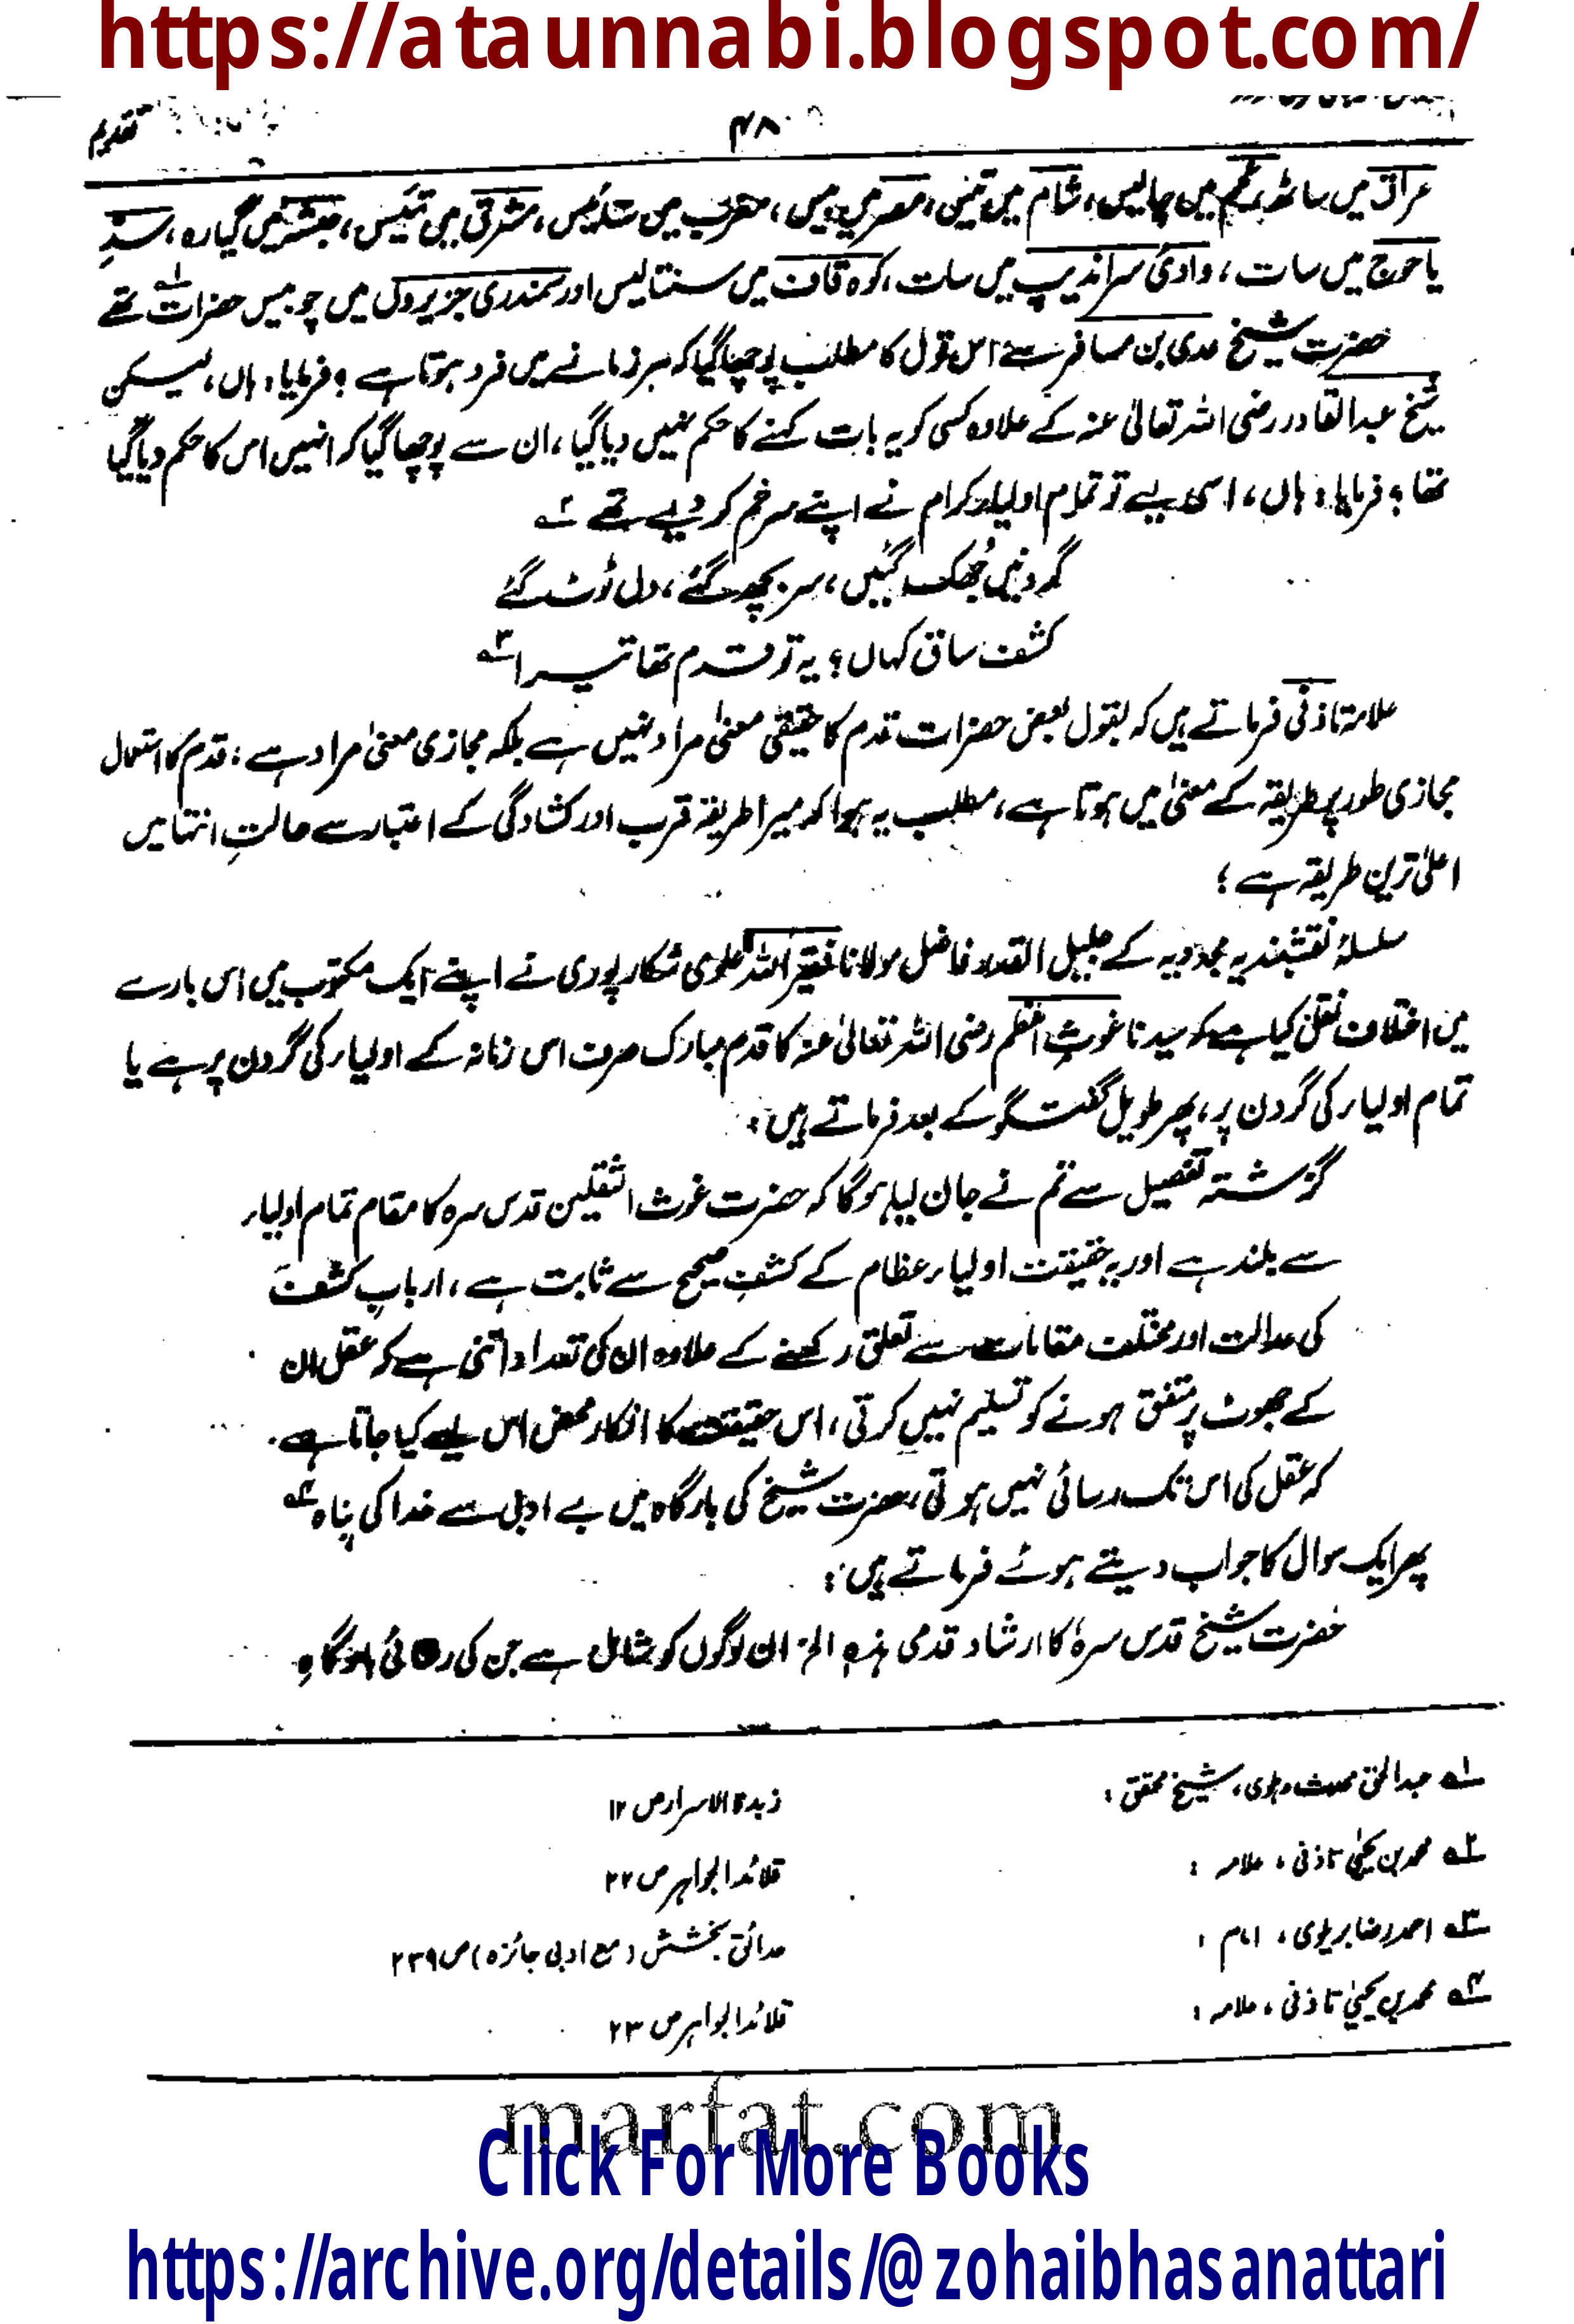 https://ataunnabi.blogspot.com/
تقدیم
۴۸
عراق میں ساٹھ، عجم میں چالیس، شام میں تیس، مصر میں بیس، مغرب میں ستائیس، مشرق میں تئیس، حبشہ میں گیارہ، سدِّ
یاجوج میں سات، وادیٔ سراندیپ میں سات، کوہ قاف میں سنتالیس اور سمندری جزیروں میں چوبیس حضرات تھے ۱؎
حضرت شیخ عدی بن مسافر سے اس قول کا مطلب پوچھا گیا کہ ہر زمانے میں فرد ہوتا ہے؟ فرمایا: ہاں، لیکن
شیخ عبدالقادر رضی اللہ تعالیٰ عنہ کے علاوہ کسی کو یہ بات کہنے کا حکم نہیں دیا گیا، ان سے پوچھا گیا کہ انہیں اس کا حکم دیا گیا
تھا؟ فرمایا: ہاں، اسی لیے تو تمام اولیاء کرام نے اپنے سر خم کر دیے تھے ۲؎
گردنیں جُھک گئیں، سر بچھ گئے، دل ٹوٹ گئے
کشف ساق کہاں؟ یہ تو قدم تھا تیرا ۳؎
علامہ تاذفی فرماتے ہیں کہ بقول بعض حضرات قدم کا حقیقی معنیٰ مراد نہیں ہے بلکہ مجازی معنیٰ مراد ہے، قدم کا استعمال
مجازی طور پر طریقہ کے معنیٰ میں ہوتا ہے، مطلب یہ ہوا کہ میرا طریقہ قرب اور کشادگی کے اعتبار سے حالتِ انتہا میں
اعلیٰ ترین طریقہ ہے؛
سلسلۂ نقشبندیہ مجددیہ کے جلیل القدر فاضل مولانا فقیر اللہ علوی شکارپوری نے اپنے ایک مکتوب میں اس بارے
میں اختلاف نقل کیا ہے کہ سیدنا غوثِ اعظم رضی اللہ تعالیٰ عنہ کا قدم مبارک صرف اس زمانہ کے اولیاء کی گردن پر ہے یا
تمام اولیاء کی گردن پر، پھر طویل گفتگو کے بعد فرماتے ہیں:
گزشتہ تفصیل سے تم نے جان لیا ہوگا کہ حضرت غوث الثقلین قدس سرہ کا مقام تمام اولیاء
سے بلند ہے اور یہ حقیقت اولیاء عظام کے کشفِ صحیح سے ثابت ہے، اربابِ کشف
کی عدالت اور مختلف مقامات سے تعلق رکھنے کے علاوہ ان کی تعداد اتنی ہے کہ عقل ان
کے جھوٹ پر متفق ہونے کو تسلیم نہیں کرتی، اس حقیقت کا انکار محض اس لیے کیا جاتا ہے
کہ عقل کی اس تک رسائی نہیں ہوتی، حضرت شیخ کی بارگاہ میں بے ادبی سے خدا کی پناہ ۴؎
پھر ایک سوال کا جواب دیتے ہوئے فرماتے ہیں:
حضرت شیخ قدس سرہٗ کا ارشاد قدمی ہٰذہٖ الخ ان لوگوں کو شامل ہے جن کی رسائی بارگاہِ
۱؎ عبدالحق محدث دہلوی، شیخ محقق: زبدۃ الاسرار ص ۱۲
۲؎ محمد بن یحییٰ تاذفی، علامہ: قلائد الجواہر ص ۲۲
۳؎ احمد رضا بریلوی، امام: حدائق بخشش (مع ادبی جائزہ) ص ۲۳۹
۴؎ محمد بن یحییٰ تاذفی، علامہ: قلائد الجواہر ص ۲۳
marfat.com
Click For More Books
https://archive.org/details/@zohaibhasanattari